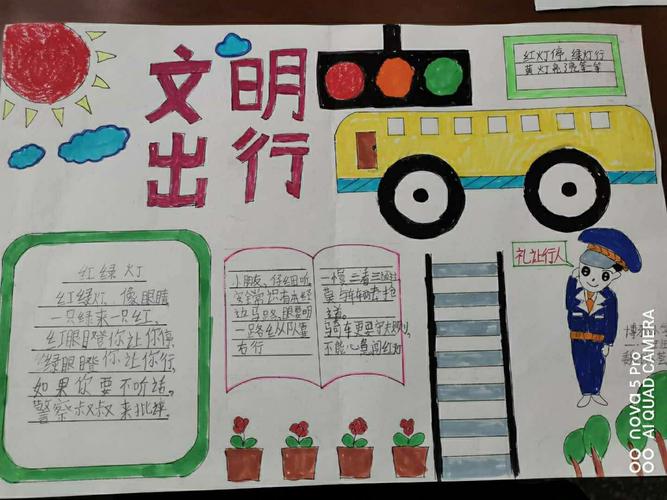 文明
出行
红灯停,绿灯行
黄灯亮了等一等
礼让行人
红绿灯
红绿灯,像眼睛
一只绿来一只红,
红眼瞪你让你停,
绿眼瞪你让你行,
如果你要不听话,
警察叔叔来批评。
小朋友,仔细听,
安全常识有本经
过马路,眼要明
一路纵队
右行
一慢二看三通过
莫与车辆去抢
骑车更要守
不能心急闯红灯
nova 5 Pro
AI QUAD CAMERA